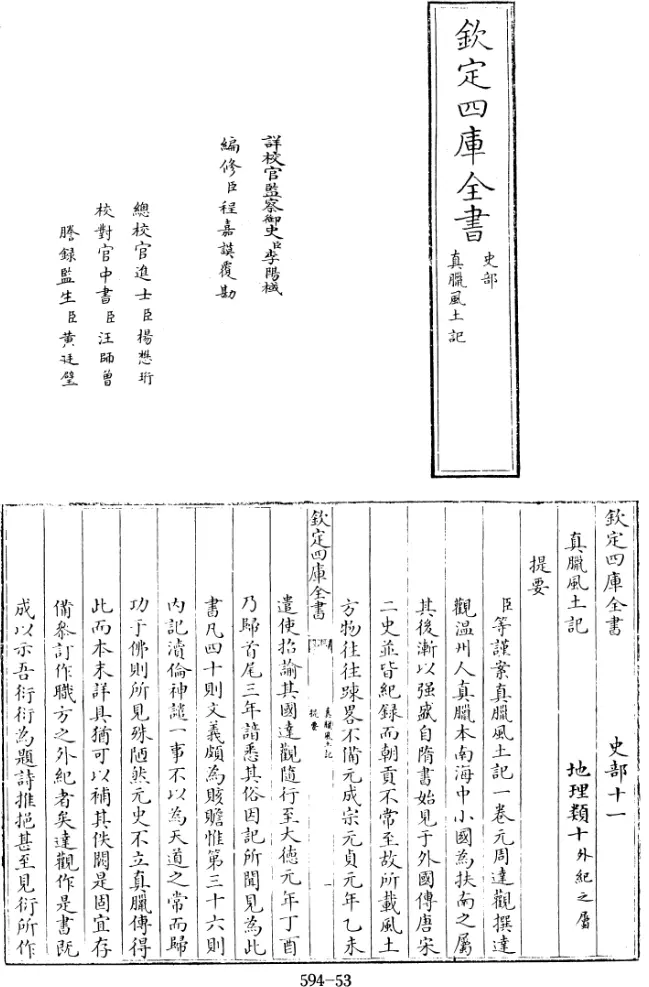 欽定四庫全書
史部
真臘風土記
詳校官監察御史臣李陽棫
編修臣程嘉謨覆勘
總校官進士臣楊懋珩
校對官中書臣汪師曾
謄録監生臣黄廷璧
欽定四庫全書
史部十一
真臘風土記
地理類十外紀之屬
提要
臣等謹案真臘風土記一卷元周達觀撰達
觀温州人真臘本南海中小國為扶南之屬
其後漸以强盛自隋書始見于外國傳唐宋
二史並皆紀録而朝貢不常至故所載風土
方物往往踈畧不備元成宗元貞元年乙未
欽定四庫全書
真臘風土記
提要
一
遣使招諭其國達觀隨行至大德元年丁酉
乃歸首尾三年諳悉其俗因記所聞見為此
書凡四十則文義頗為賅贍惟第三十六則
内記瀆倫神譴一事不以為天道之常而歸
功于佛則所見殊陋然元史不立真臘傳得
此而本末詳具猶可以補其佚闕是固宜存
備叅訂作職方之外紀者矣達觀作是書既
成以示吾衍衍為題詩推挹甚至見衍所作
594-53